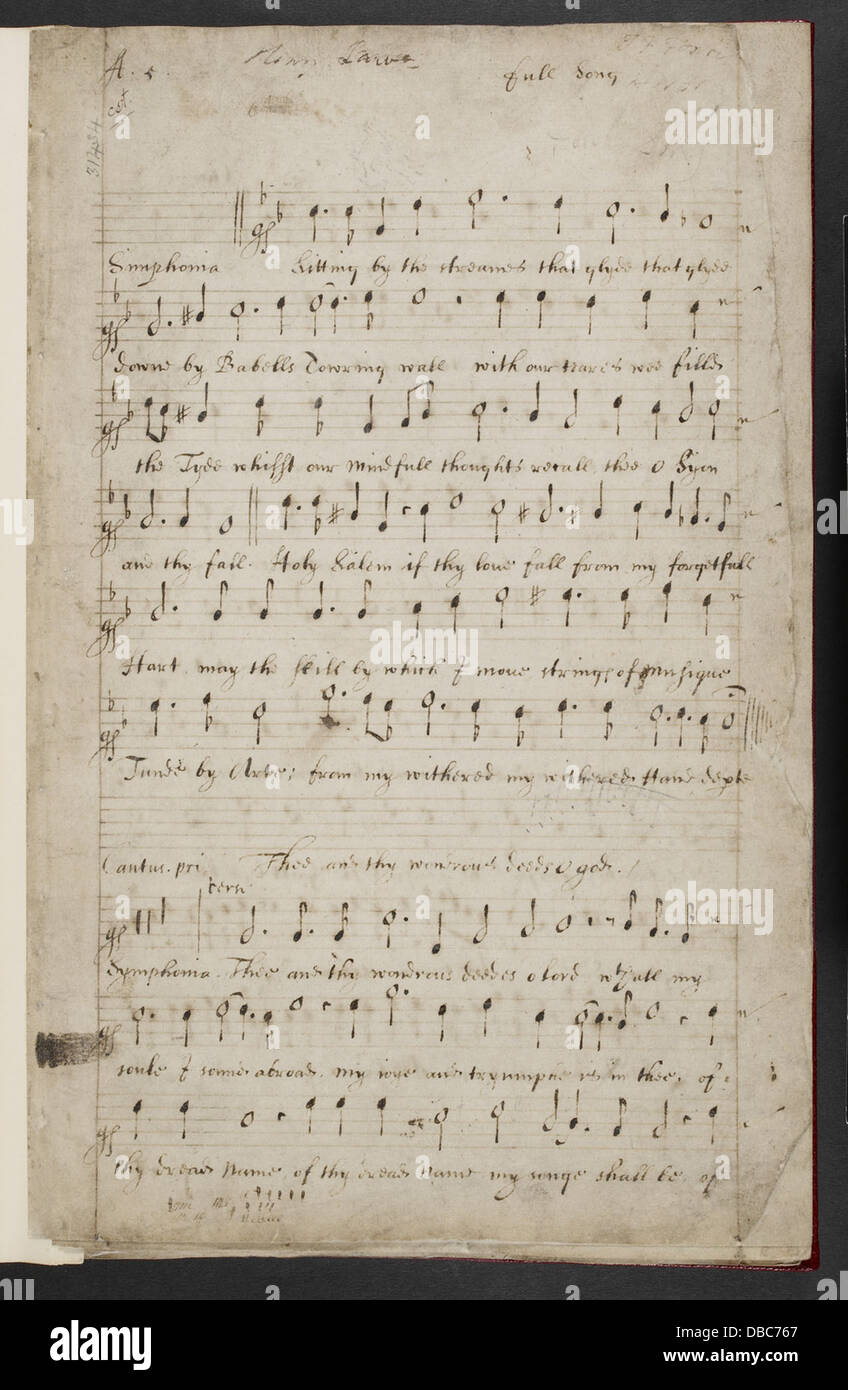 A. 5. Henry Lawes
full Song
cat.
31434
Simphonia Sitting by the streames that glyde that glyde
downe by Babells Towring wall with our teares wee filld
the Tyde whilst our mindfull thoughts recall thee o Syon
and thy fall. Holy Salem if thy love fall from my forgetfull
Hart may the skill by which I move strings of musique
Tunde by Arte; from my withered my withered Hand depte
Cantus. pri Thee and thy wondrous deeds o god.
verse
Symphonia. Thee and thy wondrous deedes o Lord wth all my
soule I sound abroad. my ioye and tryumphe is in thee. of
thy dread name, of thy dread name my songe shall be, of
alamy
Image ID: DBC767
www.alamy.com